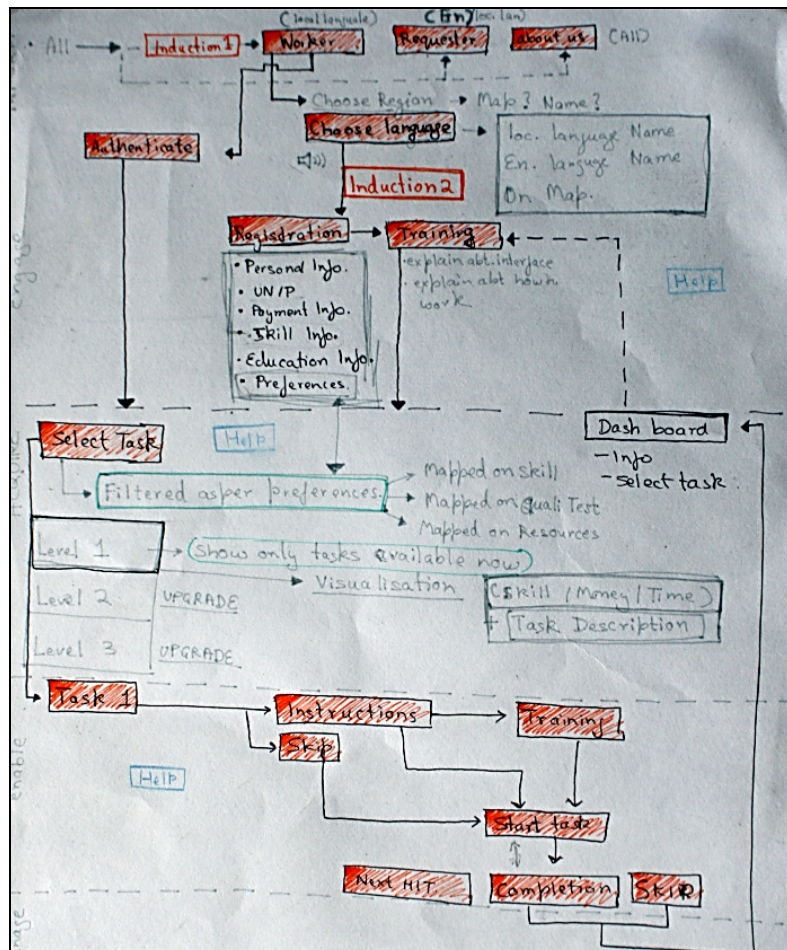 (local languale)
(En) loc. lan)
• All
Induction 1
Worker
Requester
about us
(All)
Choose Region → Map? Name?
Choose language
loc. language Name
En. languge Name
On Map.
Authenticate
Induction2
Registration
Training
• explain abt. interface
• explain abt how h
work
• Personal Info.
• UN/P
• Payment Info.
• Skill Info.
• Education Info.
• Preferences.
engage
Help
Select Task
Help
Dash board
- Info
- Select task.
Filtered asper preferences.
Mapped on Skill
Mapped on Quali Test
Mapped on Resources
Level 1
Show only tasks available now
Visualisation
(Skill / Money / Time)
+ Task Description
Level 2
UPGRADE
Level 3
UPGRADE
Task 1
Instructions
Training
Skip
enable
Help
Start task
Next HIT
Completion
SKIP